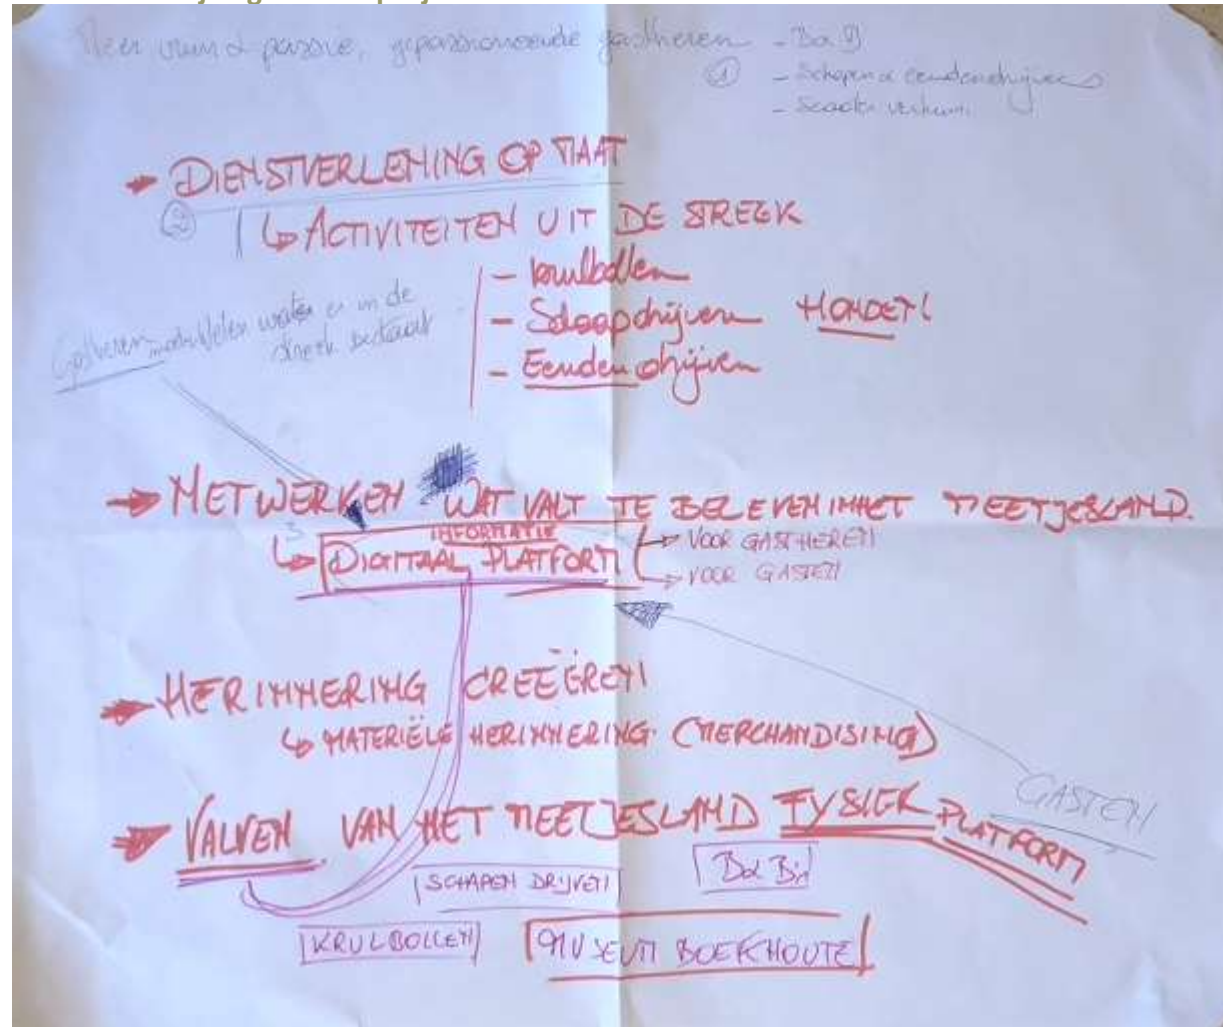 Meer passie, gepassioneerde gastheren - B&B
① - Schapen & eendendrijvers
-
→ DIENSTVERLENING OP MAAT
② ↳ ACTIVITEITEN UIT DE STREEK
- krulbollen
- Schaapdrijven HONDEN!
- Eendendrijven
Gastheren er in de
streek bestaat
→ NETWERKEN WAT VALT TE BELEVEN IN HET MEETJESLAND.
3 INFORMATIE
↳ DIGITAAL PLATFORM → VOOR GASTHEREN
→ VOOR GASTEN
→ HERINNERING CREEËREN
↳ MATERIËLE HERINNERING (MERCHANDISING)
GASTEN
→ VALVEN VAN HET MEETJESLAND FYSIEK PLATFORM
SCHAPEN DRIJVEN B&B's
KRULBOLLEN MUSEUM BOEKHOUTE